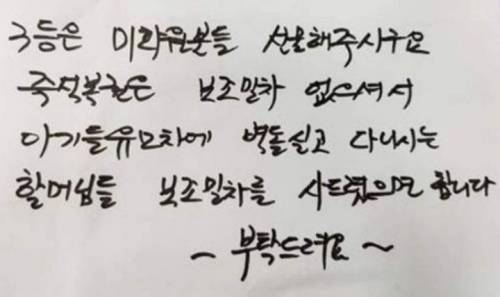 3등은 미화원분들 선물해주시구요
즉석복권은 보조밀차 없으셔서
아기들유모차에 벽돌실고 다니시는
할머님들 보조밀차를 사드렸으면 합니다
~ 부탁드려요 ~